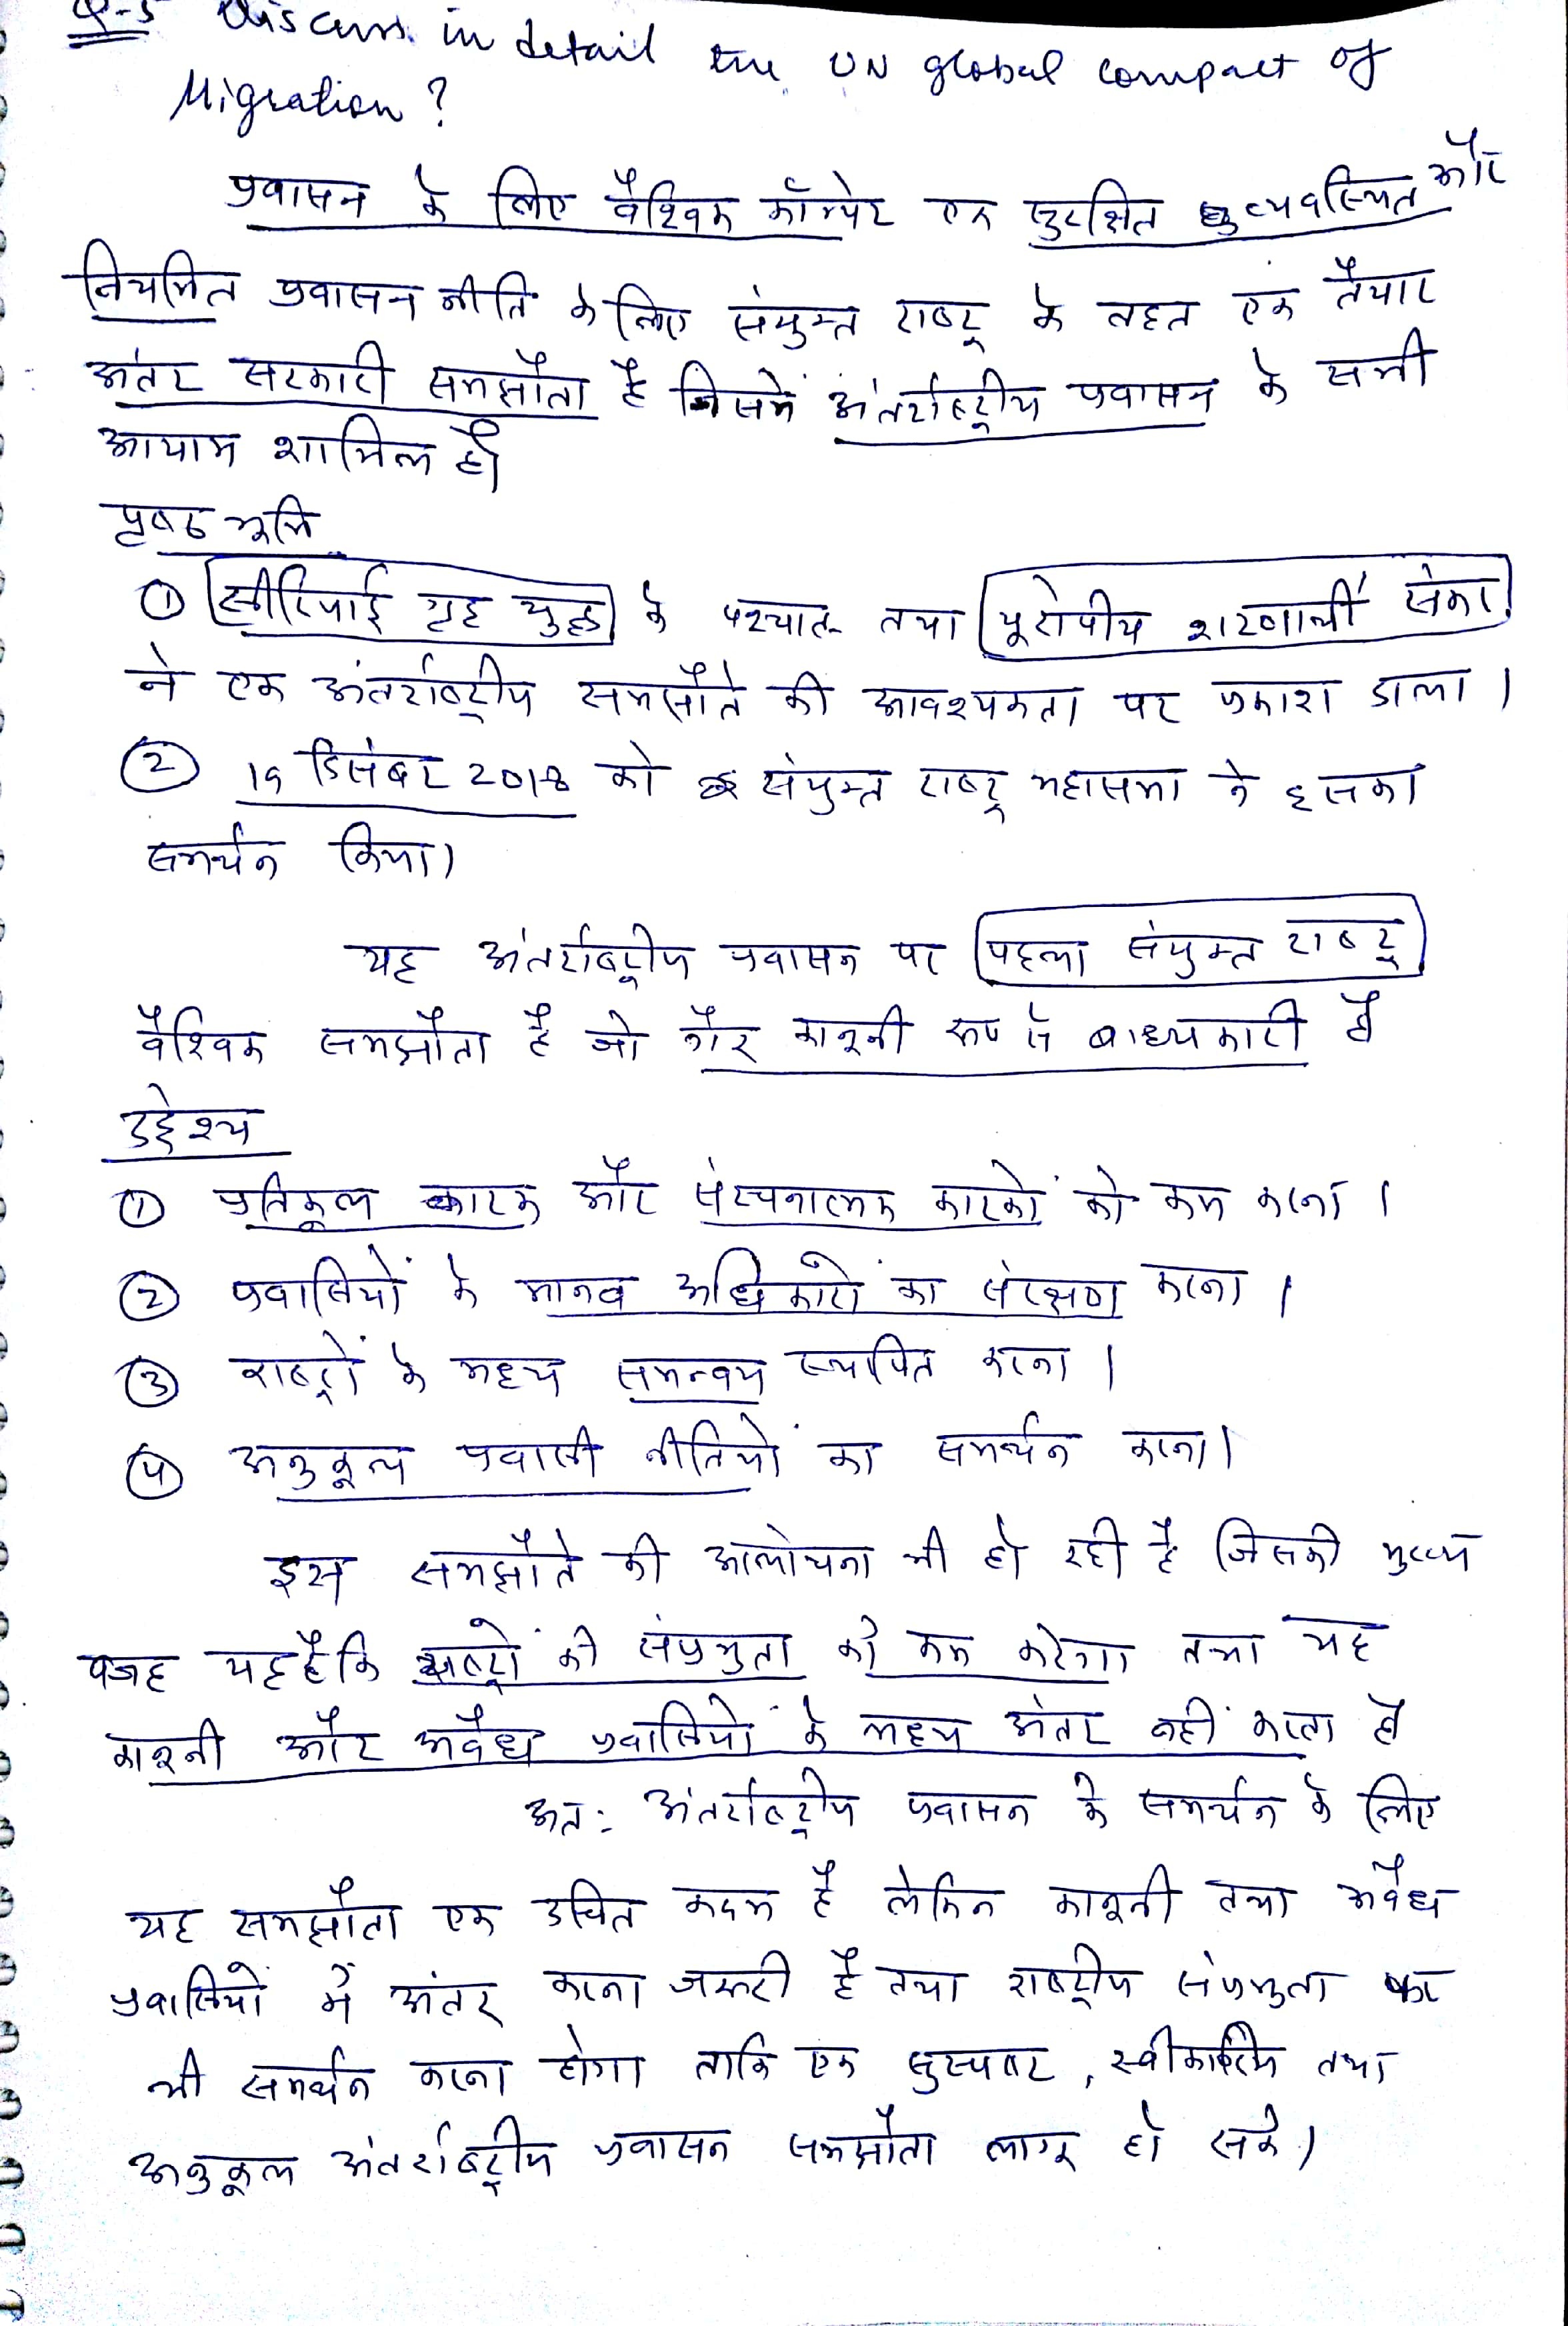 Q-5 Discuss in detail the UN global compact of
Migration ?
प्रवासन के लिए वैश्विक कॉम्पेट एक सुरक्षित सुव्यवस्थित और
नियमित प्रवासन नीति के लिए संयुक्त राष्ट्र के तहत एक तैयार
अंतर सरकारी समझौता है जिसमें अंतर्राष्ट्रीय प्रवासन के सभी
आयाम शामिल है।
पृष्ठ भूमि
① सीरियाई गृह युद्ध के पश्चात तथा यूरोपीय शरणार्थी संकट
ने एक अंतर्राष्ट्रीय समझौते की आवश्यकता पर प्रकाश डाला।
② 19 दिसंबर 2018 को संयुक्त राष्ट्र महासभा ने इसका
समर्थन किया।
यह अंतर्राष्ट्रीय प्रवासन पर पहला संयुक्त राष्ट्र
वैश्विक समझौता है जो गैर कानूनी रूप से बाध्यकारी है
उद्देश्य
① प्रतिकूल कारक और संरचनात्मक कारकों को कम करना।
② प्रवासियों के मानव अधिकारों का संरक्षण करना।
③ राष्ट्रों के मध्य समन्वय स्थापित करना।
④ अनुकूल प्रवासी नीतियों का समर्थन करना।
इस समझौते की आलोचना भी हो रही है जिसकी मुख्य
वजह यह है कि राष्ट्रों की संप्रभुता को कम करेगा तथा यह
कानूनी और अवैध प्रवासियों के मध्य अंतर नहीं करता है
अत: अंतर्राष्ट्रीय प्रवासन के समर्थन के लिए
यह समझौता एक उचित कदम है लेकिन कानूनी तथा अवैध
प्रवासियों में अंतर करना जरूरी है तथा राष्ट्रीय संप्रभुता का
भी समर्थन करना होगा ताकि एक सुस्पष्ट, तथा
अनुकूल अंतर्राष्ट्रीय प्रवासन समझौता लागू हो सके।